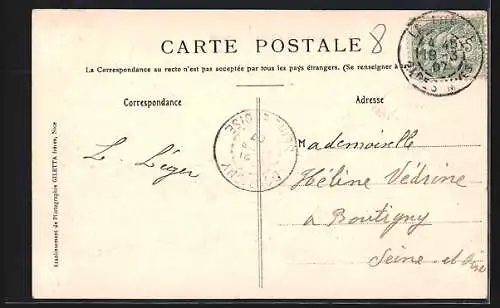 CARTE POSTALE
8
La Correspondance au recto n'est pas acceptée par tous les pays étrangers. (Se renseigner à
Correspondance
Adresse
Mademoiselle
L. Léger
Hélène Védrine
à Boutigny
Seine et Oise
Etablissement de Photographie GILETTA frères, Nice